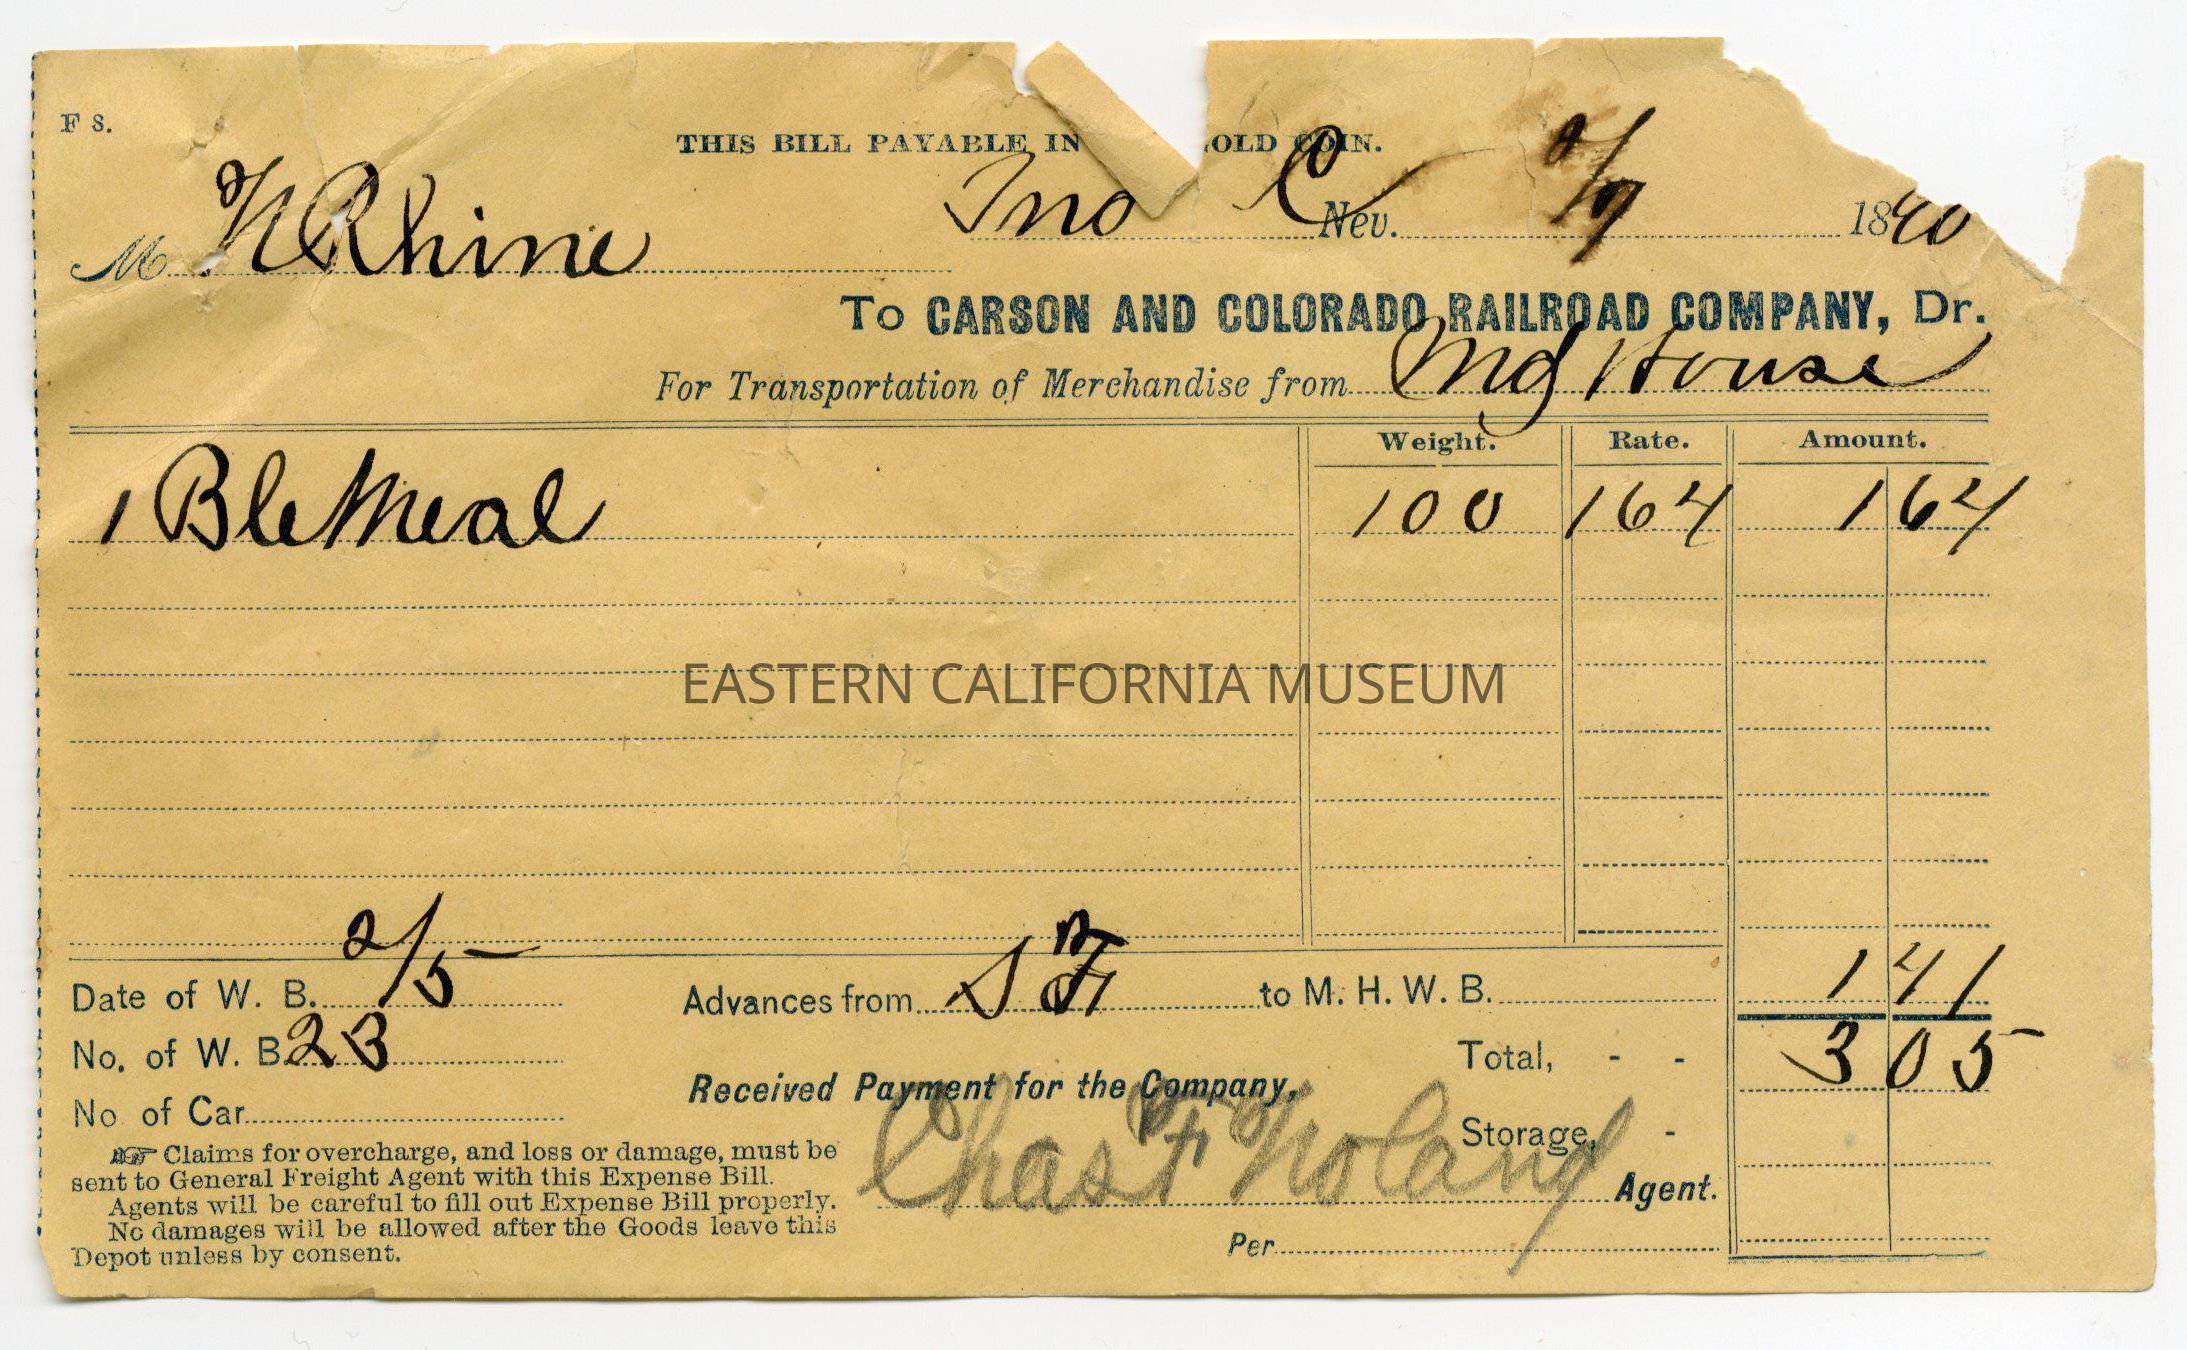 F 8.
THIS BILL PAYABLE IN OLD COIN.
M N Rhine Ino C Nev. 2/9 1890
To CARSON AND COLORADO RAILROAD COMPANY, Dr.
For Transportation of Merchandise from Md House
Weight. Rate. Amount.
1 Ble Meal 100 164 1 64
EASTERN CALIFORNIA MUSEUM
Date of W. B. 2/5 Advances from S F to M. H. W. B. 1 41
No. of W. B. 23 Total, - - 3 05
Received Payment for the Company,
No of Car
Storage, -
☞ Claims for overcharge, and loss or damage, must be
sent to General Freight Agent with this Expense Bill.
Agents will be careful to fill out Expense Bill properly.
No damages will be allowed after the Goods leave this
Depot unless by consent.
Chas F Noland Agent.
Per